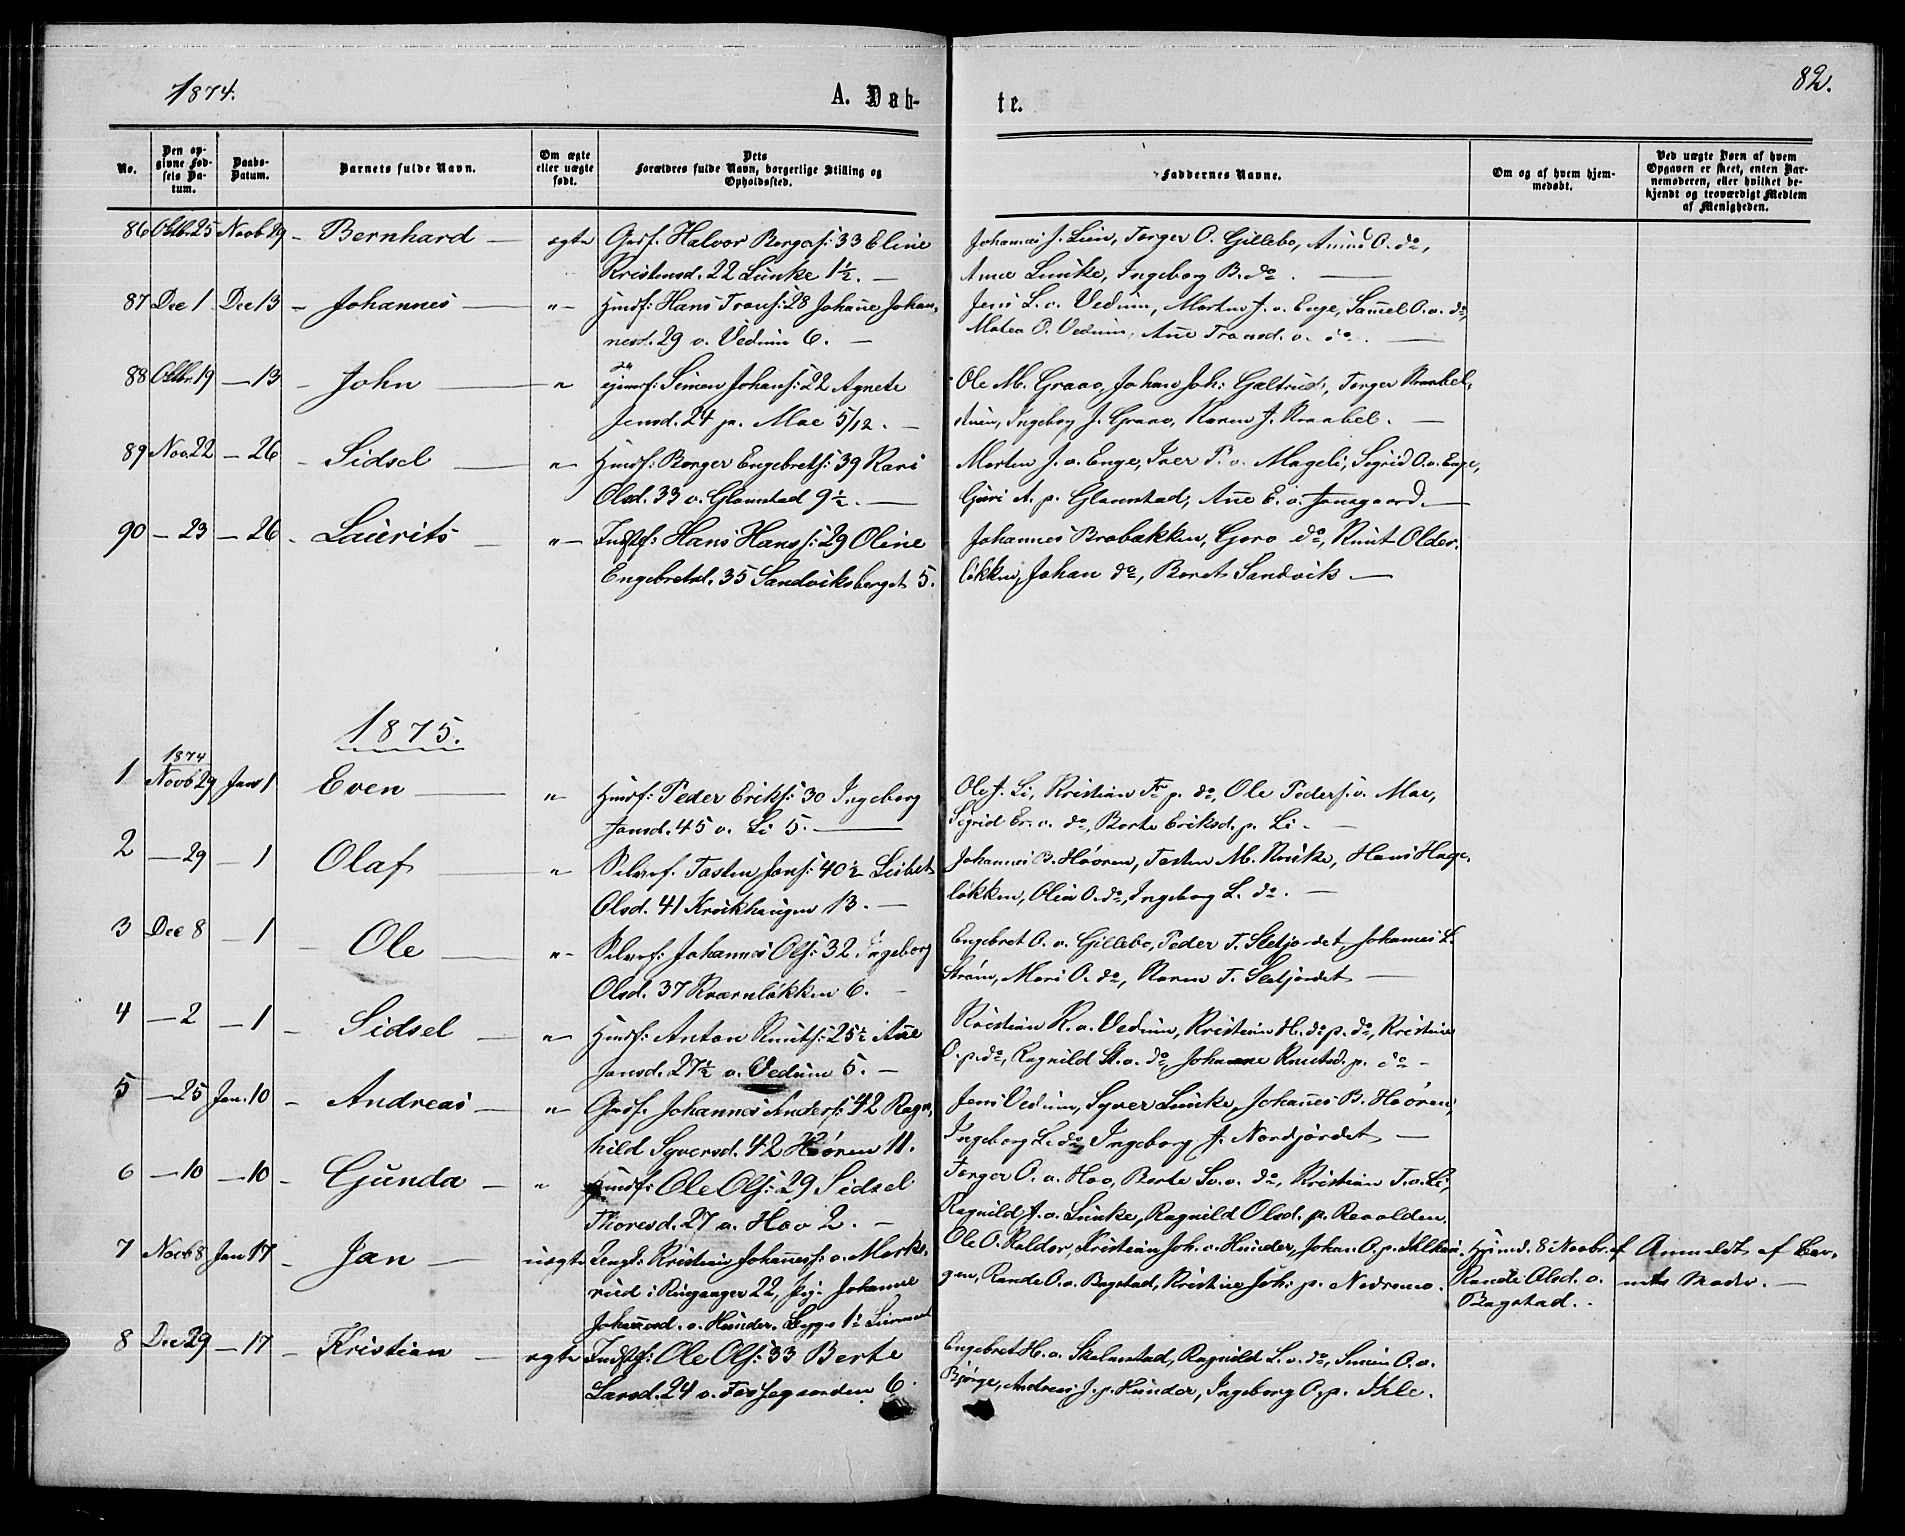 1874.
A. Døb-
te.
82.
No.
Den op-
givne Fød-
sels Da-
tum.
Daabs-
Datum.
Barnets fulde Navn.
Om ægte
eller uægte
født.
Dets
Forældres fulde Navn, borgerlige Stilling og
Opholdssted.
Faddernes Navne.
Om og af hvem hjem-
medøbt.
Ved uægte Børn af hvem
Opgaven er skeet, enten Bar-
nemoderen, eller hvilket be-
kjendt og troværdigt Medlem
af Menigheden.
86 Oktbr 25 Novb 29 - Bernhard - ægte Gmf. Halvor Borgers: 33 Eline
Kristensd. 22 Lunke 1½. -
Johannes J. Lien, Torger O. Gillebo, Anne O. do,
Anne Lunke, Ingeborg B. do. -
87 Dec 1 Dec 13 - Johannes - " Husf: Hans Tronds: 28 Johane Johan-
nesd. 29 v. Vedum 6. -
Jens L. v. Vedum, Morten J. v. Enge, Samuel O. v. do,
Matea O. Vedum, Ane Tronsd. v. do. -
88 Oktbr 19 - 13 - John - " Simen Johans: 22 Agnete
Jensd. 24 p. Moe 5/12. -
Ole M. Graav, Johan Joh: Galtrud, Torger Kraabel-
stuen, Ingeborg J. Graav, Karen J. Kraabel. -
89 Nov. 22 - 26 - Sidsel - " Husf: Borger Engebrets: 39 Kari
Olsd. 33 v. Glømstad 9½. -
Morten J. v. Enge, Iver P. v. Mageli, Sigrid O. v. Enge,
Guri A. p. Glømstad, Ane E. v. Jonsgaard. -
90 - 23 - 26 - Laurits - " Indstf: Hans Hans: 29 Oline
Engebretsd. 35 Sandviksberget 5.
Johannes Brobakken, Goro do, Knut Older-
løkken, Johan do, Beret Sandvik -
1875.
1874
1 Novb 29 Jan 1 Even - " Husf: Peder Eriks: 30 Ingeborg
Jonsd. 45 v. Li 5. -
Ole J. Li, Kristian Fr. p. do, Ole Peders. v. Moe,
Sigrid Er. v. do, Berte Eriksd. p. Li. -
2 - 29 - 1 Olaf - " Selvef. Tosten Jons: 40½ Lisbet
Olsd. 41 Krokhaugen 13. -
Johannes B. Høøren, Tosten M. Lunke, Hans Hage-
løkken, Olia O. do, Ingeborg L. do. -
3 Dec 8 - 1 - Ole - " Selvef: Johannes Ols: 32 Ingeborg
Olsd. 37 Kværnløkken 6. -
Engebret O. v. Gillebo, Peder T. Sletjordet, Johannes L.
Strøm, Mari O. do, Karen T. Sletjordet -
4 - 2 - 1 - Sidsel - " Husf: Anton Knuts: 25½ Ane
Jonsd. 27½ v. Vedum 5. -
Kristian K. v. Vedum, Kristian H. do p. do, Kristine
O. p. do, Ragnild St. v. do, Johanne Knutsd. p. do -
5 - 25 Jan. 10 - Andreas - " Gmf. Johannes Anders: 42 Ragn-
hild Syversd. 42 Høøren 11.
Jens Vedum, Syver Lunke, Johannes B. Høøren,
Ingeborg L. do, Ingeborg J. Nordjordet -
6 - 10 - 10 - Gunda - " Husf: Ole Ols: 29 Sidsel
Thoresd. 27 v. Hov 2. -
Torger O. v. Hov, Berte Sv. v. do, Kristian T. v. Li,
Ragnild J. v. Lunke, Ragnild Olsd. p. Revolden.
7 Novb 8 Jan 17 - Jan - uægte Ungk: Kristian Johannes: v. Morke-
rud i Ringsager 22, Pig: Johanne
Johannesd. v. Hunder.
Ole O. Kolder, Kristian Joh. v. Hunder, Johan O. p. Ihlehau-
gen, Rande O. v. Bagstad, Kristine Joh: p. Nedremo.
Hjemd. 8 Novbr. af
Rande Olsd. v.
Bagstad.
Anmeldt af Bar-
nets Moder. -
8 Dec 29 - 17 - Kristian - ægte Indstf: Ole Ols: 33 Berte
Larsd. 24 v. Fossegaarden 6.
Engebret H. v. Skelanstad, Ragnild L. v. do, Simen O. v.
Bjørge, Andreas J. p. Hunder, Ingeborg O. p. Ihle.